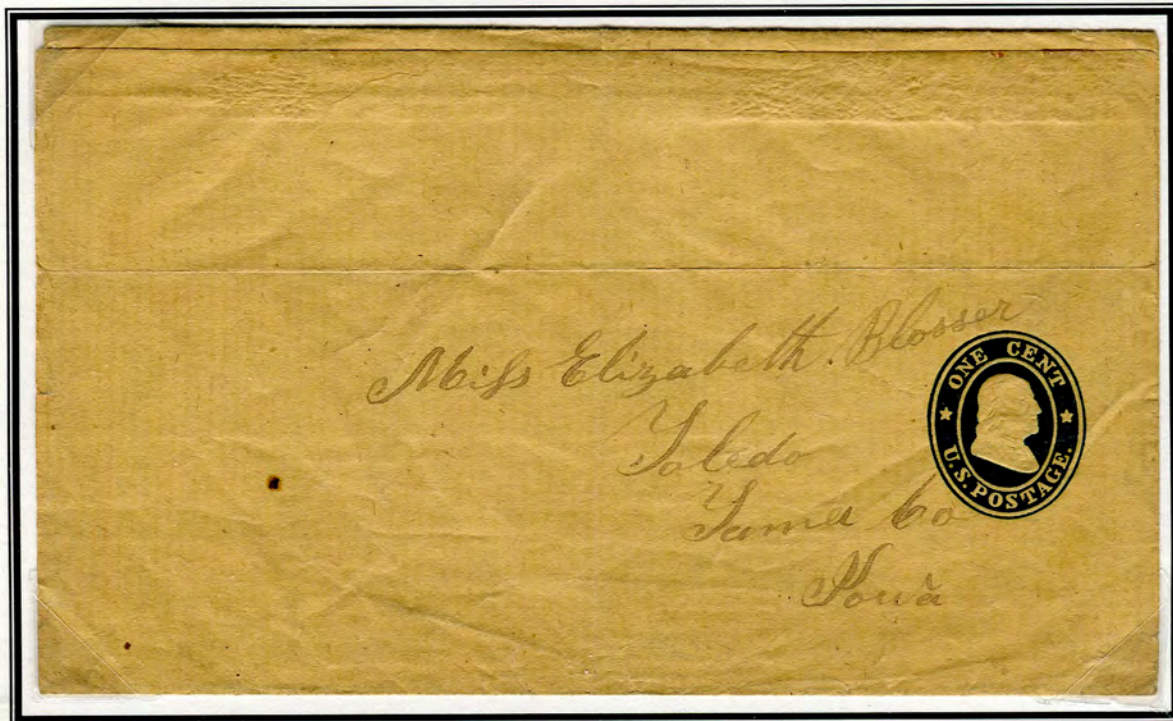 Miss Elizabeth. Blosser
Toledo
Tama Co
Iowa
ONE CENT
U.S. POSTAGE.